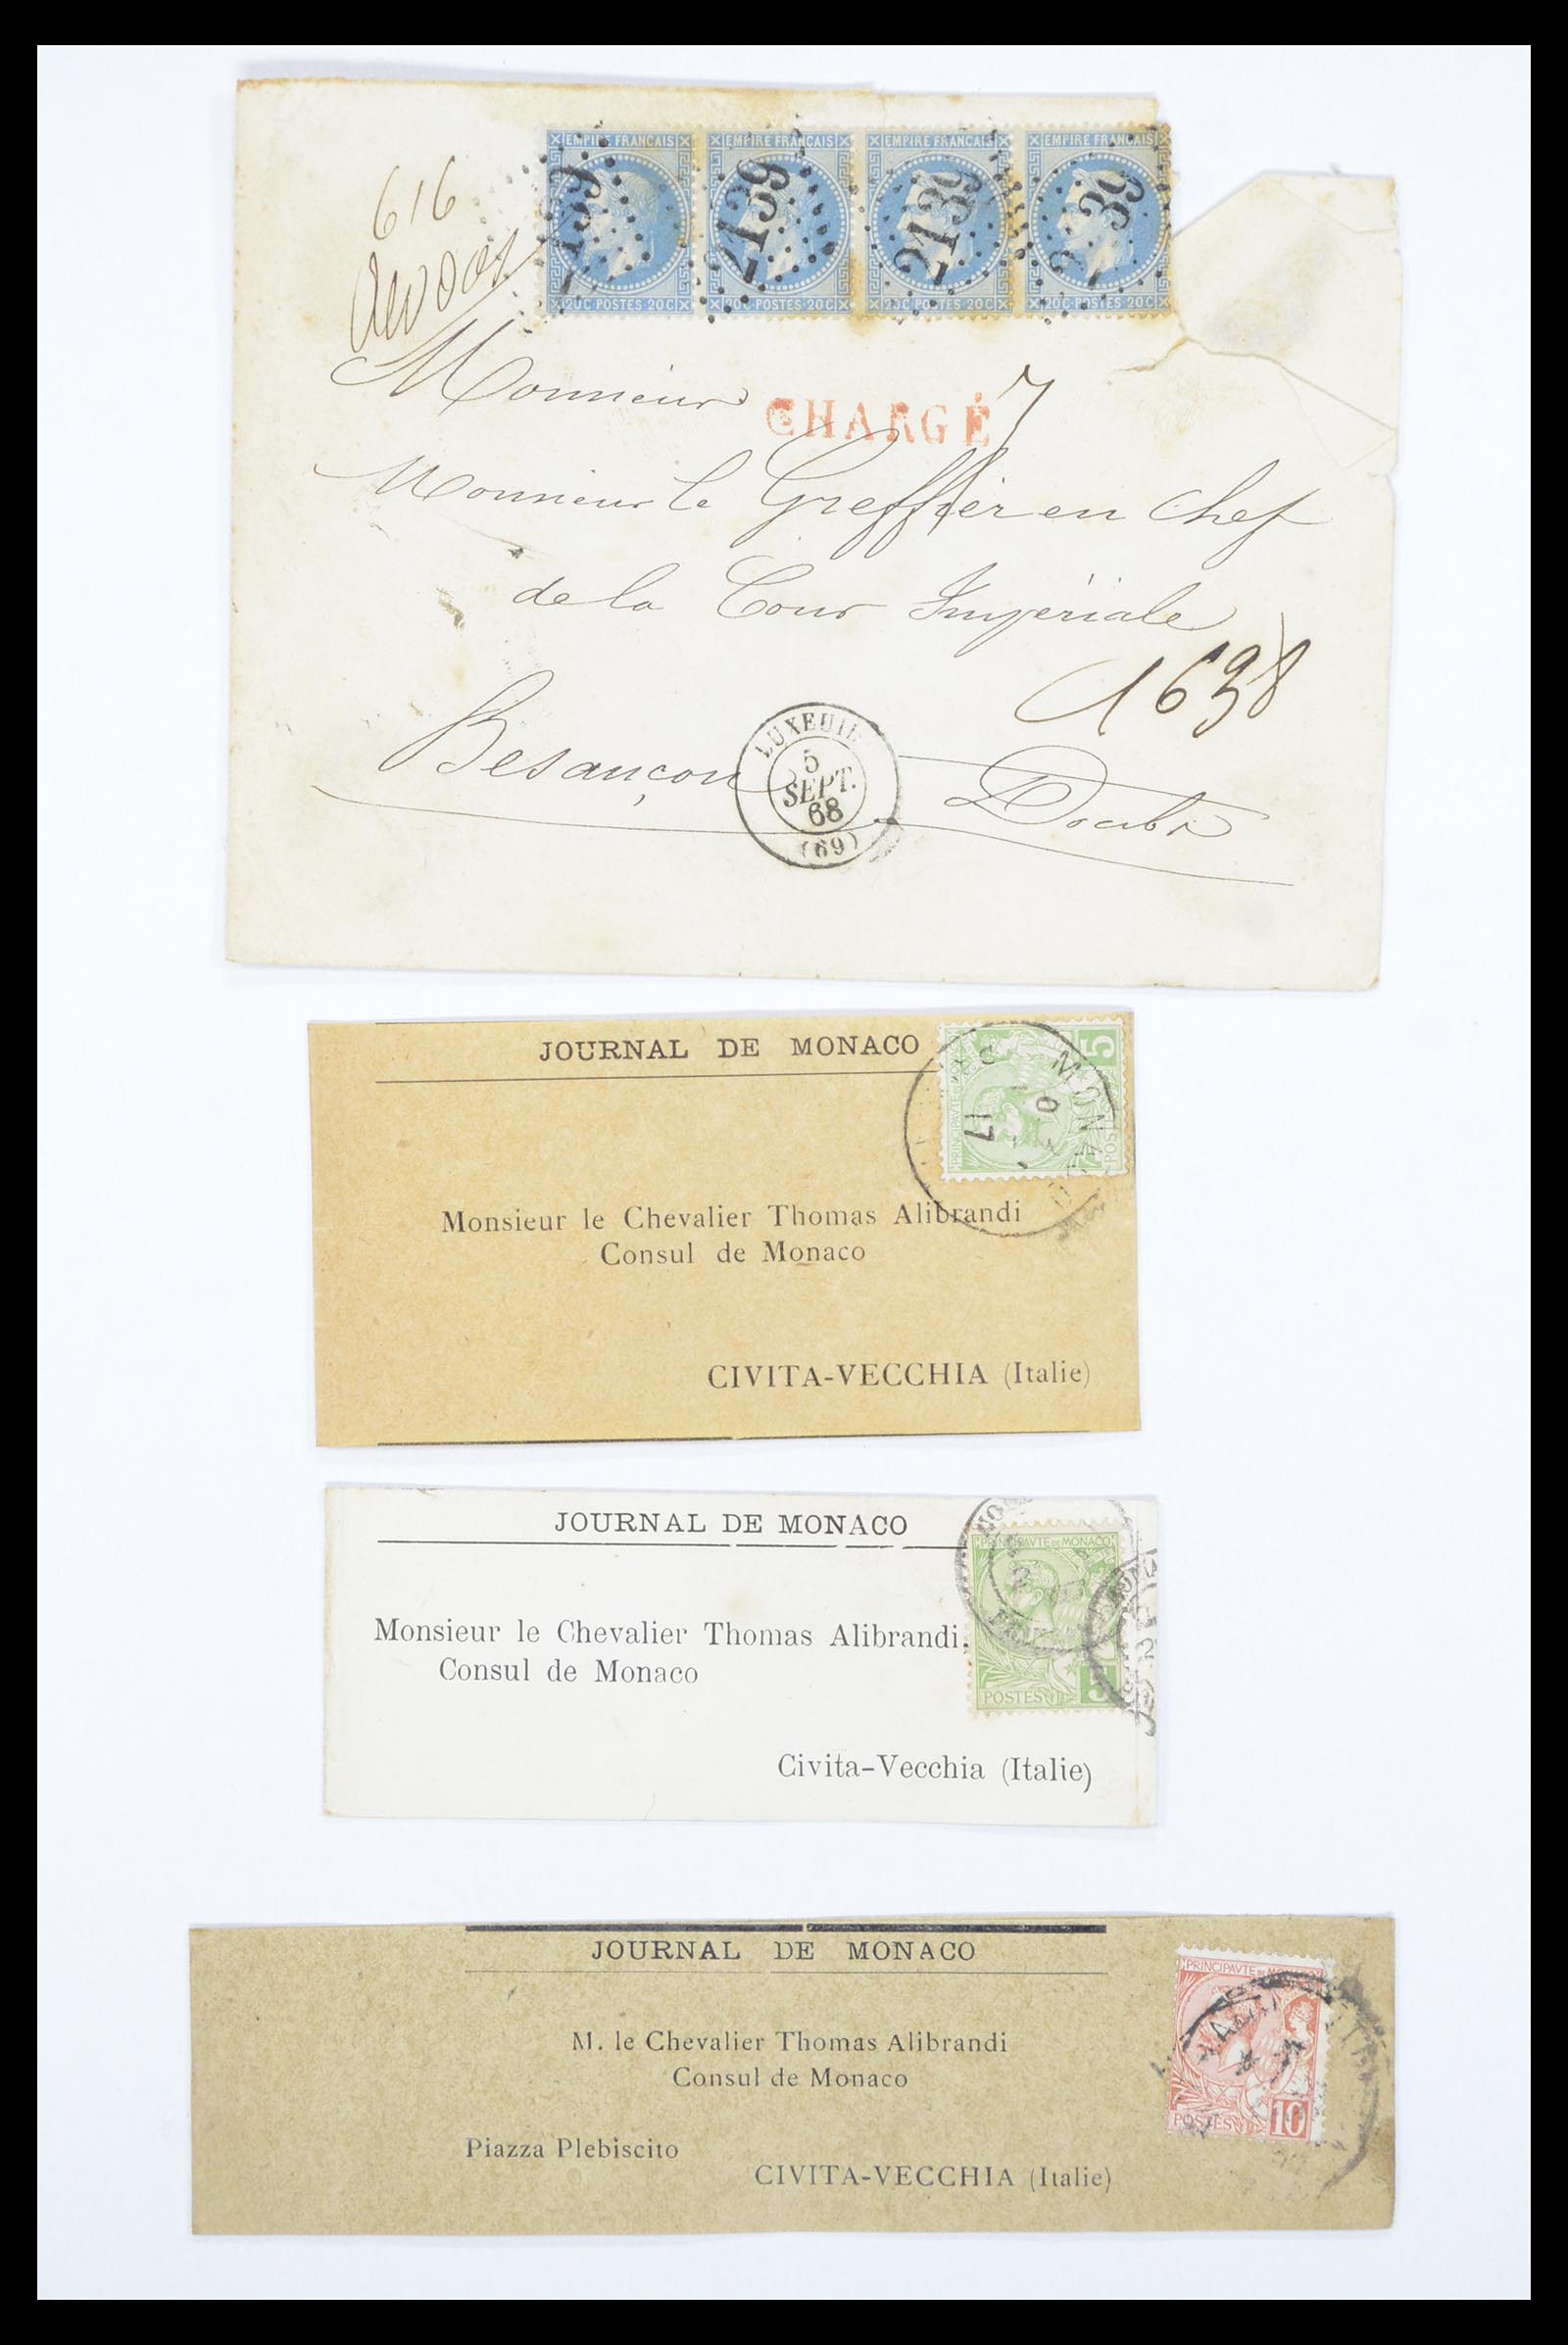 EMPIRE FRANÇAIS EMPIRE FRANÇAIS EMPIRE FRANÇAIS EMPIRE FRANÇAIS
2139 2139
20C POSTES 20C 20C POSTES 20C 20C POSTES 20C 20C POSTES 20C
616
Monsieur
CHARGÉ
Monsieur le Greffier en chef
de la Cour Impériale
1638
Besançon Doubs
LUXEUIL
5
SEPT.
68
(69)
JOURNAL DE MONACO
5
MONACO
17
Monsieur le Chevalier Thomas Alibrandi
Consul de Monaco
CIVITA-VECCHIA (Italie)
JOURNAL DE MONACO
PRINCIPAVTE DE MONACO
Monsieur le Chevalier Thomas Alibrandi.
Consul de Monaco
POSTES 5
Civita-Vecchia (Italie)
JOURNAL DE MONACO
PRINCIPAVTE DE MONACO
M. le Chevalier Thomas Alibrandi
Consul de Monaco
POSTES 10
Piazza Plebiscito
CIVITA-VECCHIA (Italie)